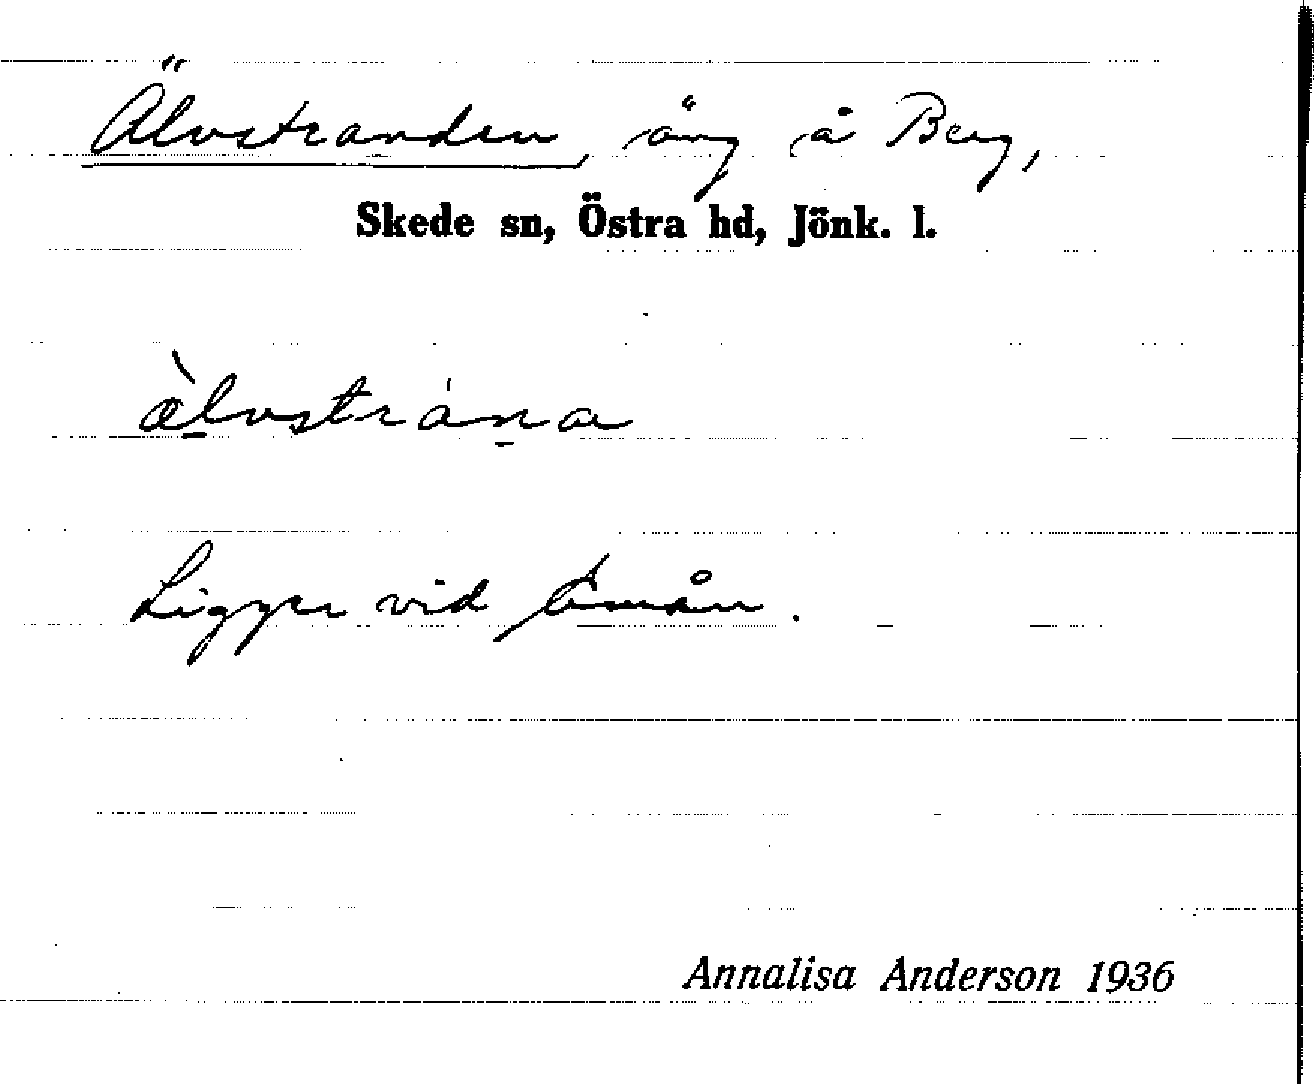 Älvstranden, äng å Berg,
Skede sn, Östra hd, Jönk. l.
æ̀lvstrána
Ligger vid Emån.
Annalisa Anderson 1936